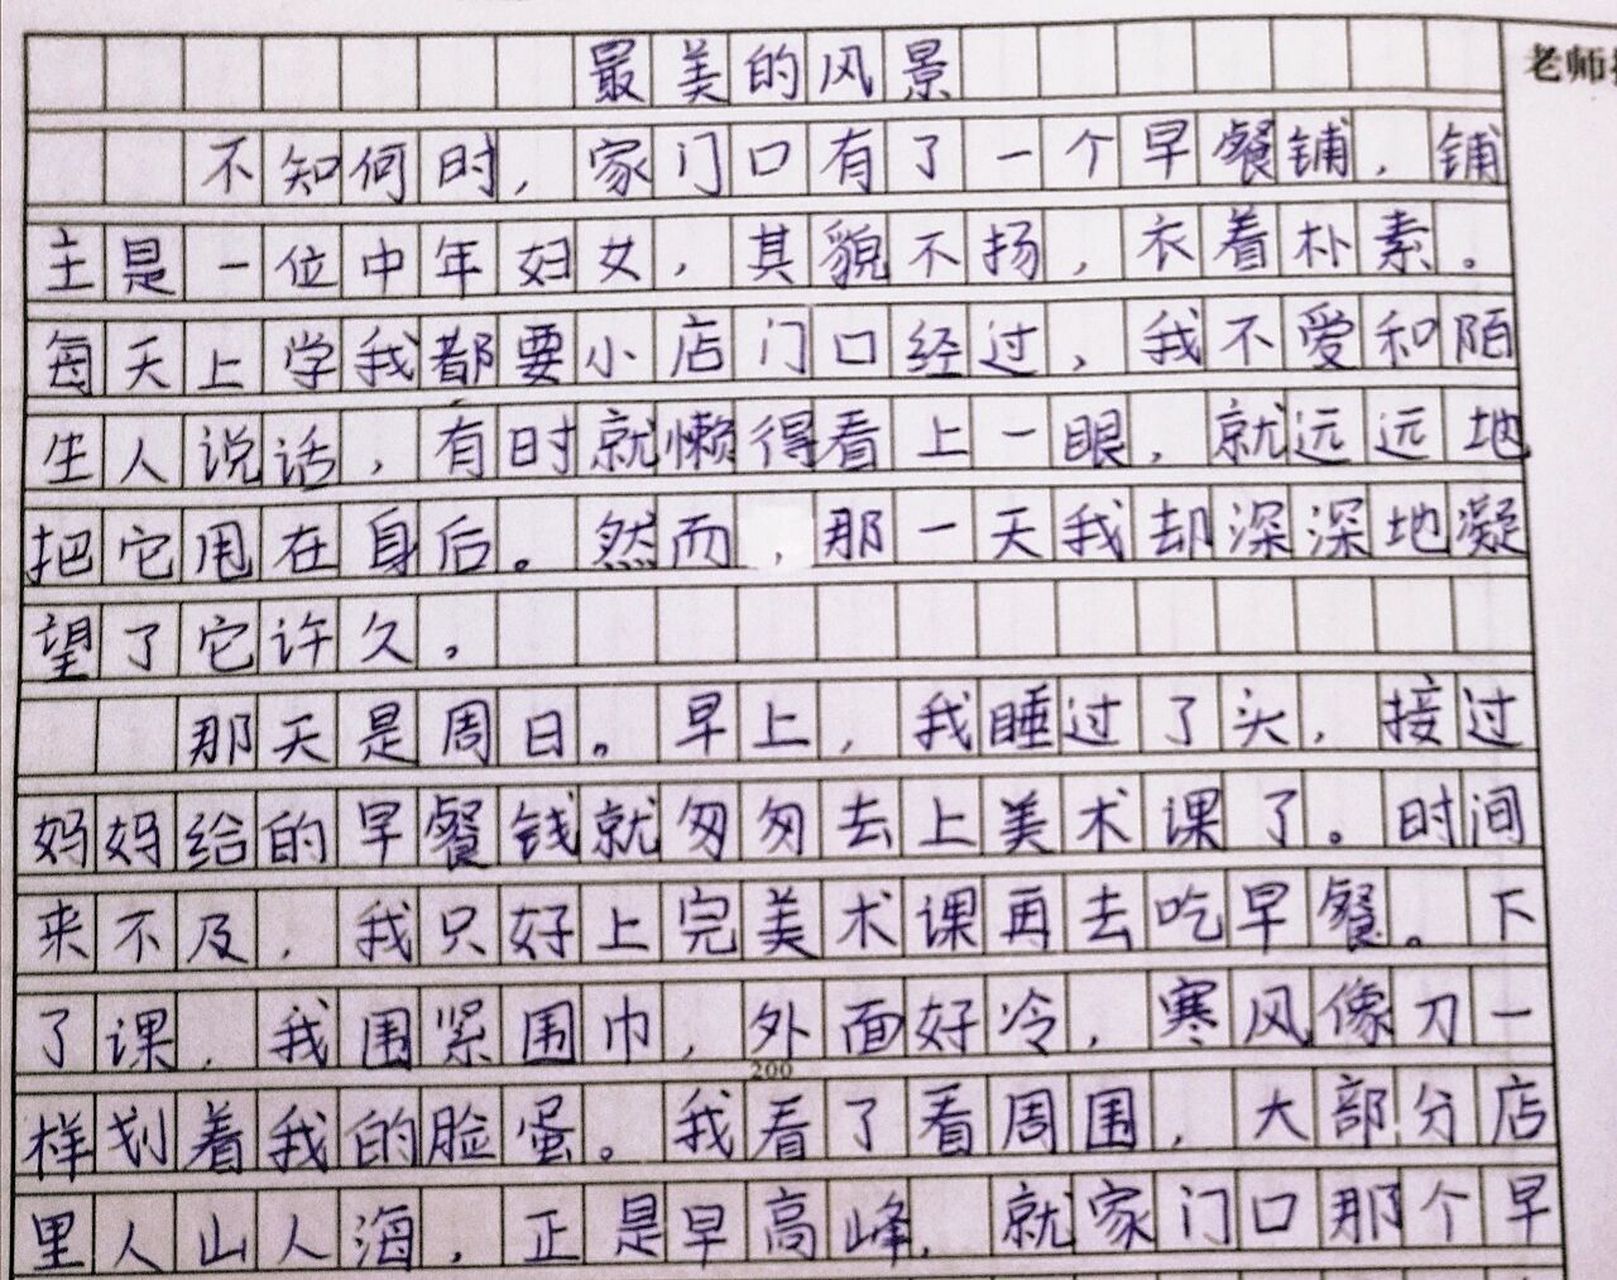 最美的风景
老师
不知何时，家门口有了一个早餐铺，铺
主是一位中年妇女，其貌不扬，衣着朴素。
每天上学我都要小店门口经过，我不爱和陌
生人说话，有时就懒得看上一眼，就远远地
把它甩在身后。然而，那一天我却深深地凝
望了它许久。
那天是周日。早上，我睡过了头，接过
妈妈给的早餐钱就匆匆去上美术课了。时间
来不及，我只好上完美术课再去吃早餐。下
了课，我围紧围巾，外面好冷，寒风像刀一
200
样划着我的脸蛋。我看了看周围，大部分店
里人山人海，正是早高峰，就家门口那个早